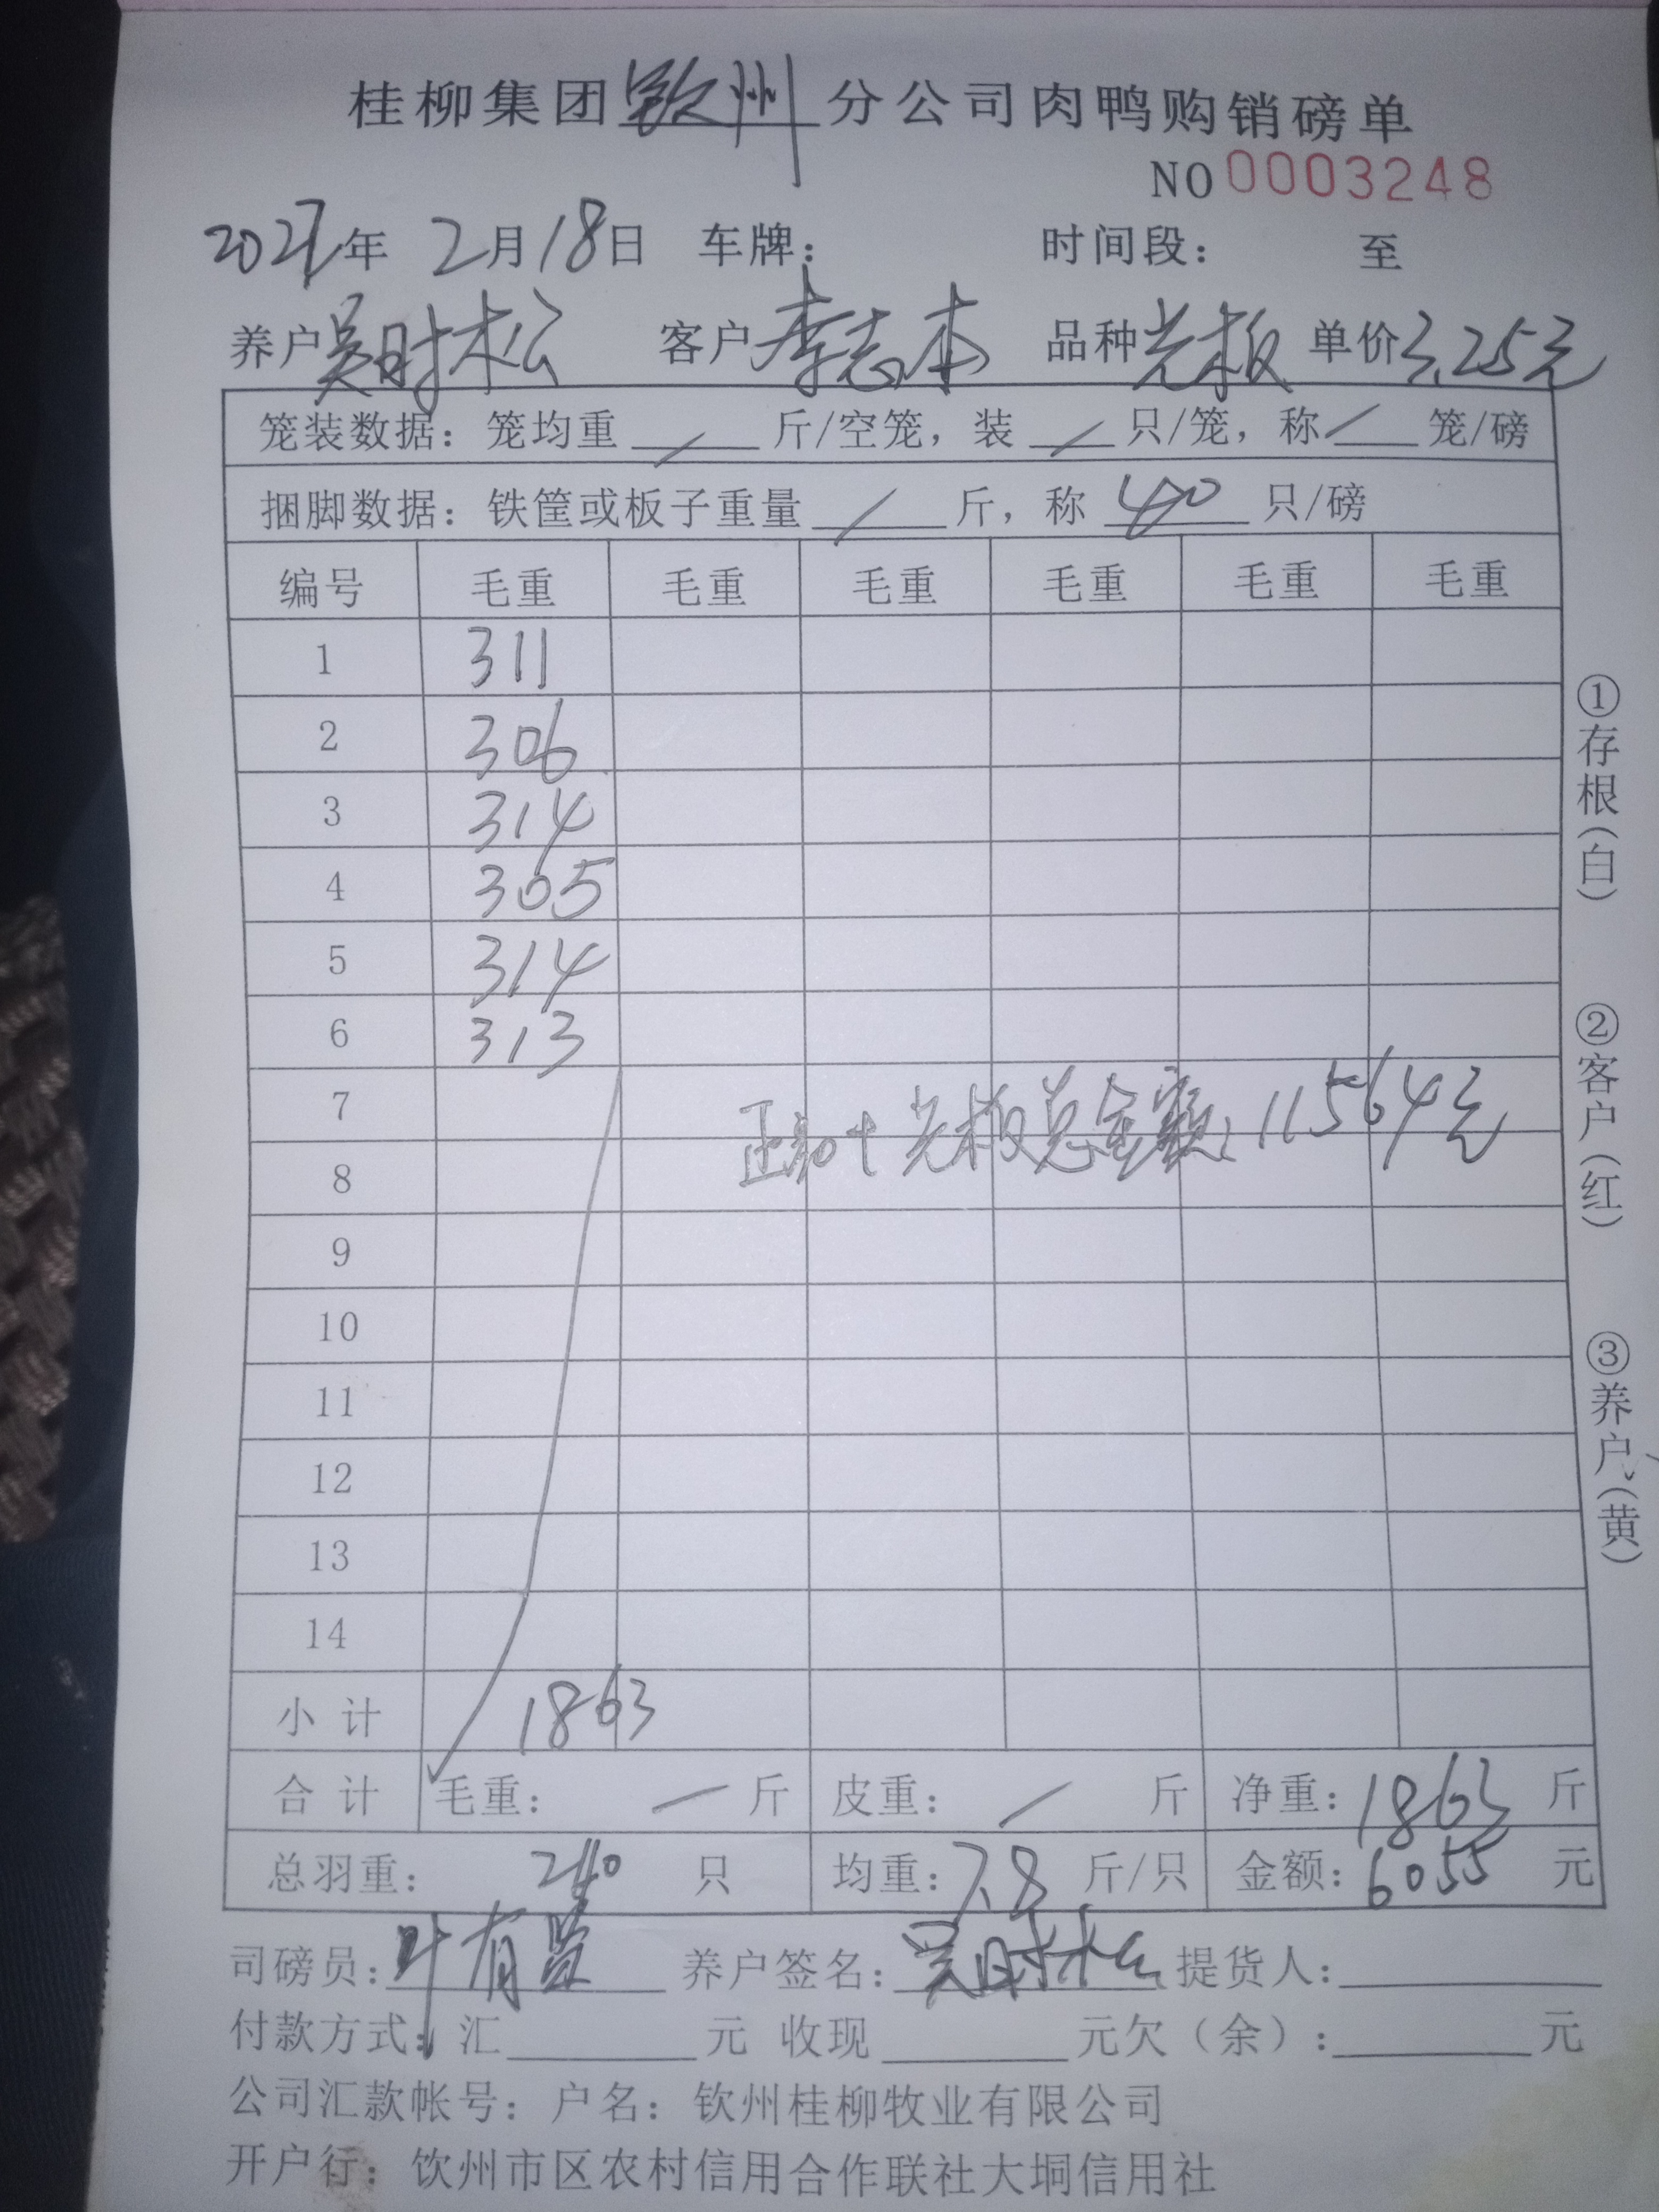 桂柳集团钦州分公司肉鸭购销磅单
NO 0003248
年 2月18日 车牌： 时间段： 至
养户吴时松 客户李志本 品种光板 单价3.25元
笼装数据：笼均重 / 斤/空笼，装 / 只/笼，称 / 笼/磅
捆脚数据：铁筐或板子重量 / 斤，称 40 只/磅
编号 毛重 毛重 毛重 毛重 毛重 毛重
1 311
2 306
3 314
4 305
5 314
6 313
7
正品+光板总金额：11564元
8
9
10
11
12
13
14
小计 1863
合计 毛重： / 斤 皮重： / 斤 净重：1863 斤
总羽重： 240 只 均重：7.8 斤/只 金额：6055 元
司磅员：叶有 养户签名：吴时松 提货人：
付款方式：汇 元 收现 元欠（余）： 元
公司汇款帐号：户名：钦州桂柳牧业有限公司
开户行：钦州市区农村信用合作联社大垌信用社
①存根（白）
②客户（红）
③养户（黄）